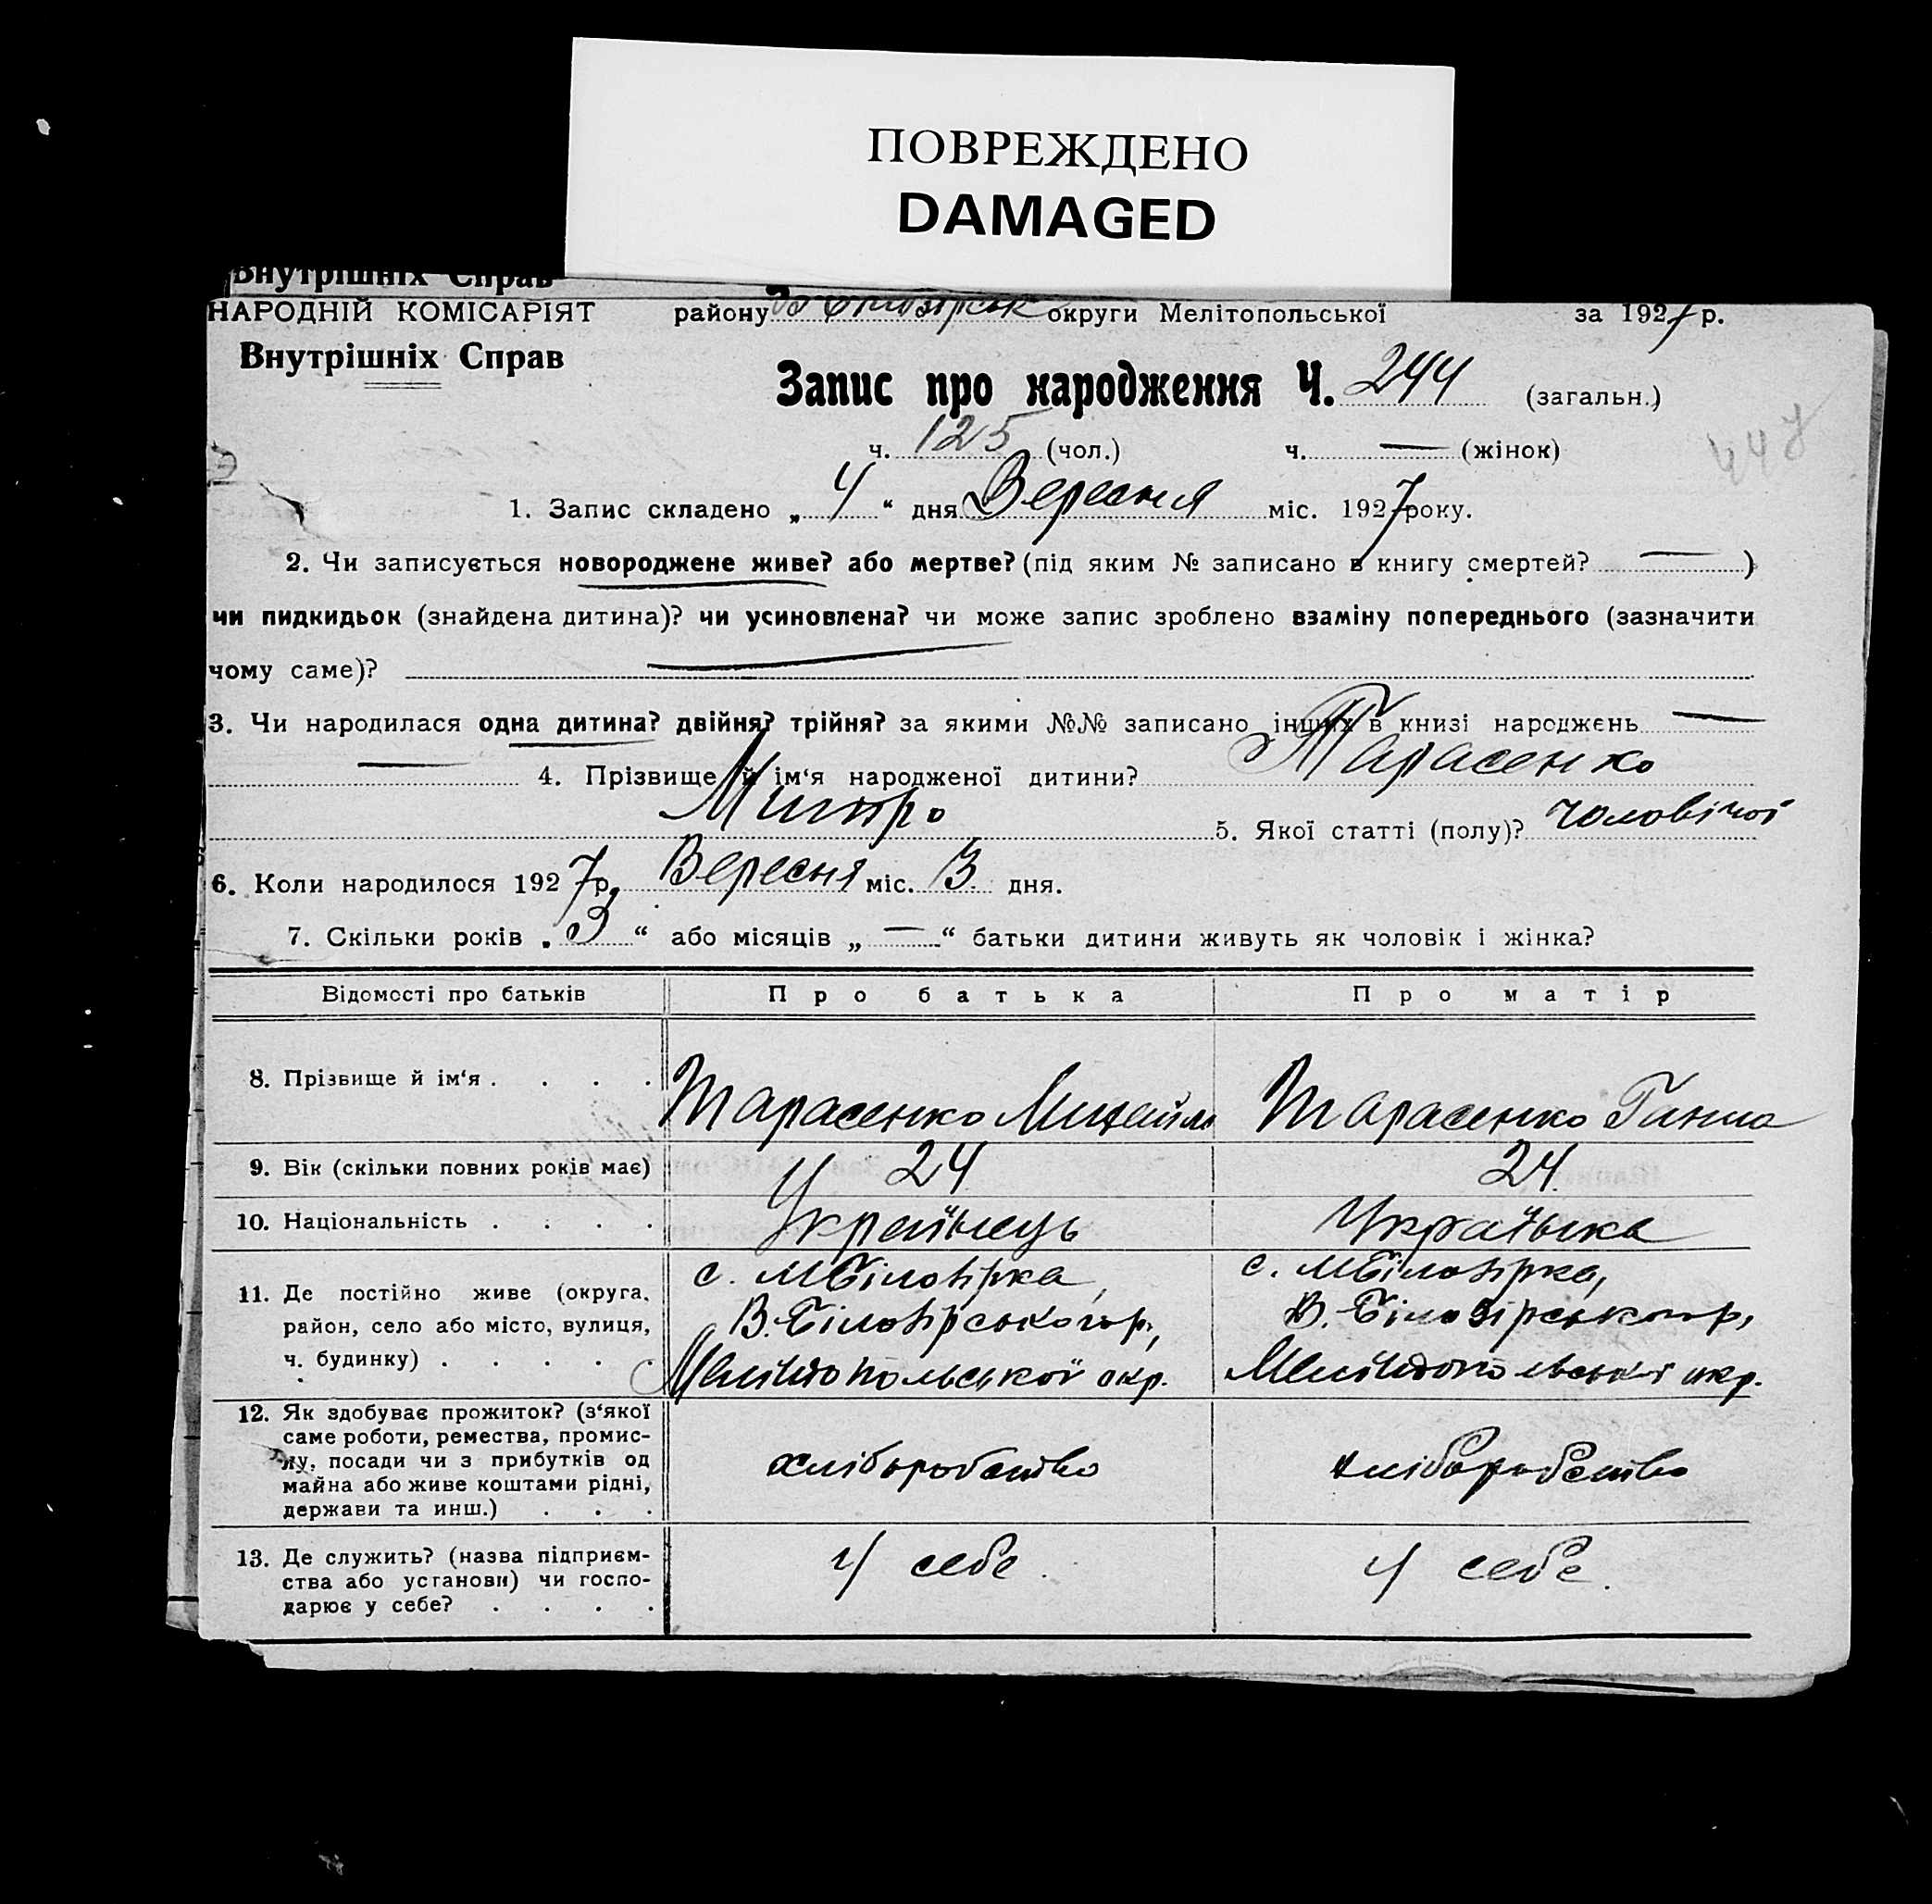 ПОВРЕЖДЕНО
DAMAGED
Внутрішніх Справ
НАРОДНІЙ КОМІСАРІЯТ
Внутрішніх Справ
району округи Мелітопольської за 1927 р.
Запис про народження Ч. 244 (загальн.)
ч. 125 (чол.) ч. — (жінок)
447
1. Запис складено „ 4 “ дня Вересня міс. 1927 року.
2. Чи записується новороджене живе? або мертве? (під яким № записано в книгу смертей? — )
чи пидкидьок (знайдена дитина)? чи усиновлена? чи може запис зроблено взаміну попереднього (зазначити
чому саме)? —
3. Чи народилася одна дитина? двійня? трійня? за якими №№ записано інших в книзі народжень —
— 4. Прізвище й ім‘я народженої дитини? Тарасенко
Митро 5. Якої статті (полу)? чоловічої
6. Коли народилося 1927 р. Вересня міс. 3 дня.
7. Скільки років „ 3 “ або місяців „ — “ батьки дитини живуть як чоловік і жінка?
Відомості про батьків Про батька Про матір
8. Прізвище й ім‘я . . . . Тарасенко Михайло Тарасенко Ганна
9. Вік (скільки повних років має) 24 24
10. Національність . . . . Українець Українка
11. Де постійно живе (округа, район, село або місто, вулиця, ч. будинку) . . . . .
с. М Білозірка,
В. Білозірського р.,
Мелітопольської окр.
с. М Білозірка,
В. Білозірського р,
Мелітопольської окр.
12. Як здобуває прожиток? (з‘якої
саме роботи, ремества, промис-
лу, посади чи з прибутків од
майна або живе коштами рідні,
держави та инш.) . . .
хліборобство хліборобство
13. Де служить? (назва підприєм-
ства або установи) чи госпо-
дарює у себе? . . . .
У себе. У себе.